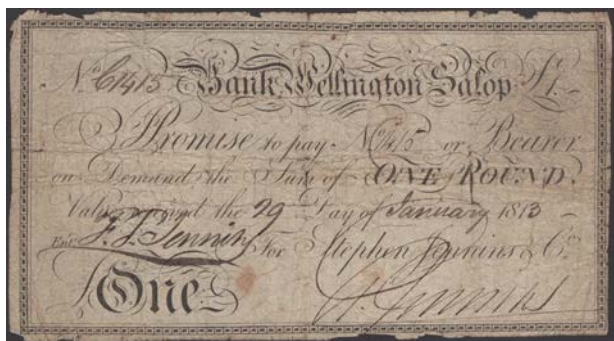 No. C1415 Bank Wellington Salop £1.
I Promise to pay No. C1415 or Bearer
on Demand the Sum of ONE POUND.
Value received the 29 Day of January 1813
Entd. For Stephen Jenkins & Co.
One